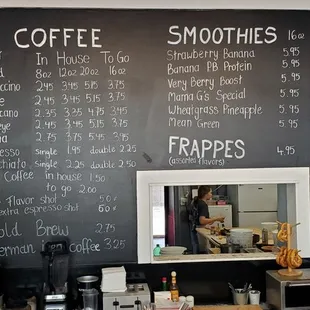 COFFEE
In House To Go
8oz 12oz 20oz 16oz
2.45 3.45 5.15 3.75
2.45 3.45 5.15 3.75
2.35 3.35 4.75 3.45
2.45 3.45 5.15 3.75
2.75 3.75 5.45 3.45
Single 1.95 double 2.25
Single 2.25 double 2.50
Coffee in house 1.50
to go 2.00
Flavor shot 50¢
extra espresso shot 60¢
Cold Brew 2.75
German iced coffee 3.25
SMOOTHIES 16oz
Strawberry Banana 5.95
Banana PB Protein 5.95
Very Berry Boost 5.95
Mama G's Special 5.95
Wheatgrass Pineapple 5.95
Mean Green 5.95
FRAPPES 4.95
(assorted flavors)